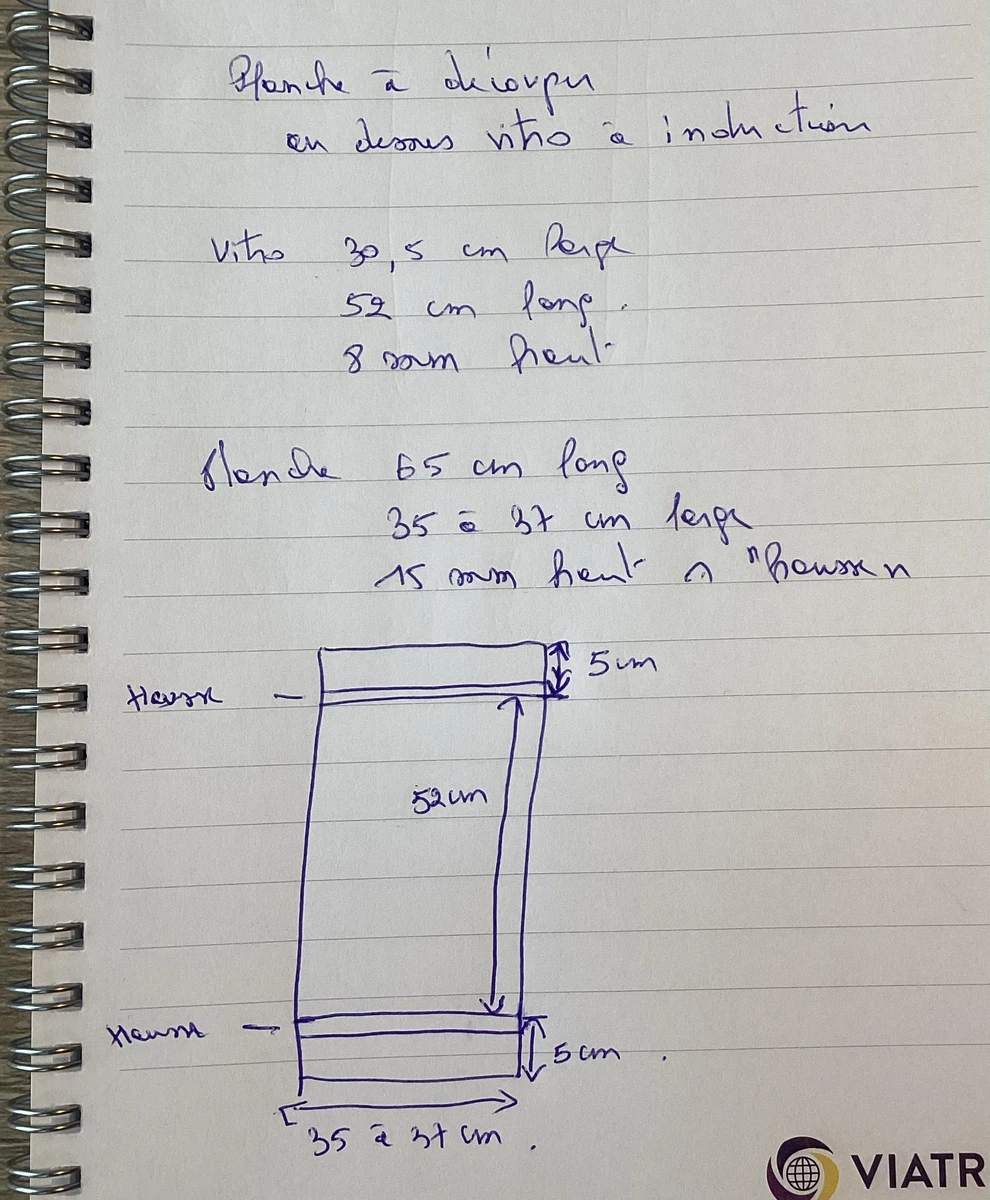 Planche à découper
en dessus vitro à induction
Vitro 30,5 cm large
52 cm long.
8 mm haut
Planche 65 cm long
35 à 37 cm large
15 mm haut "hausse"
5 cm
Hausse
52 cm
Hausse
5 cm.
35 à 37 cm.
VIATR